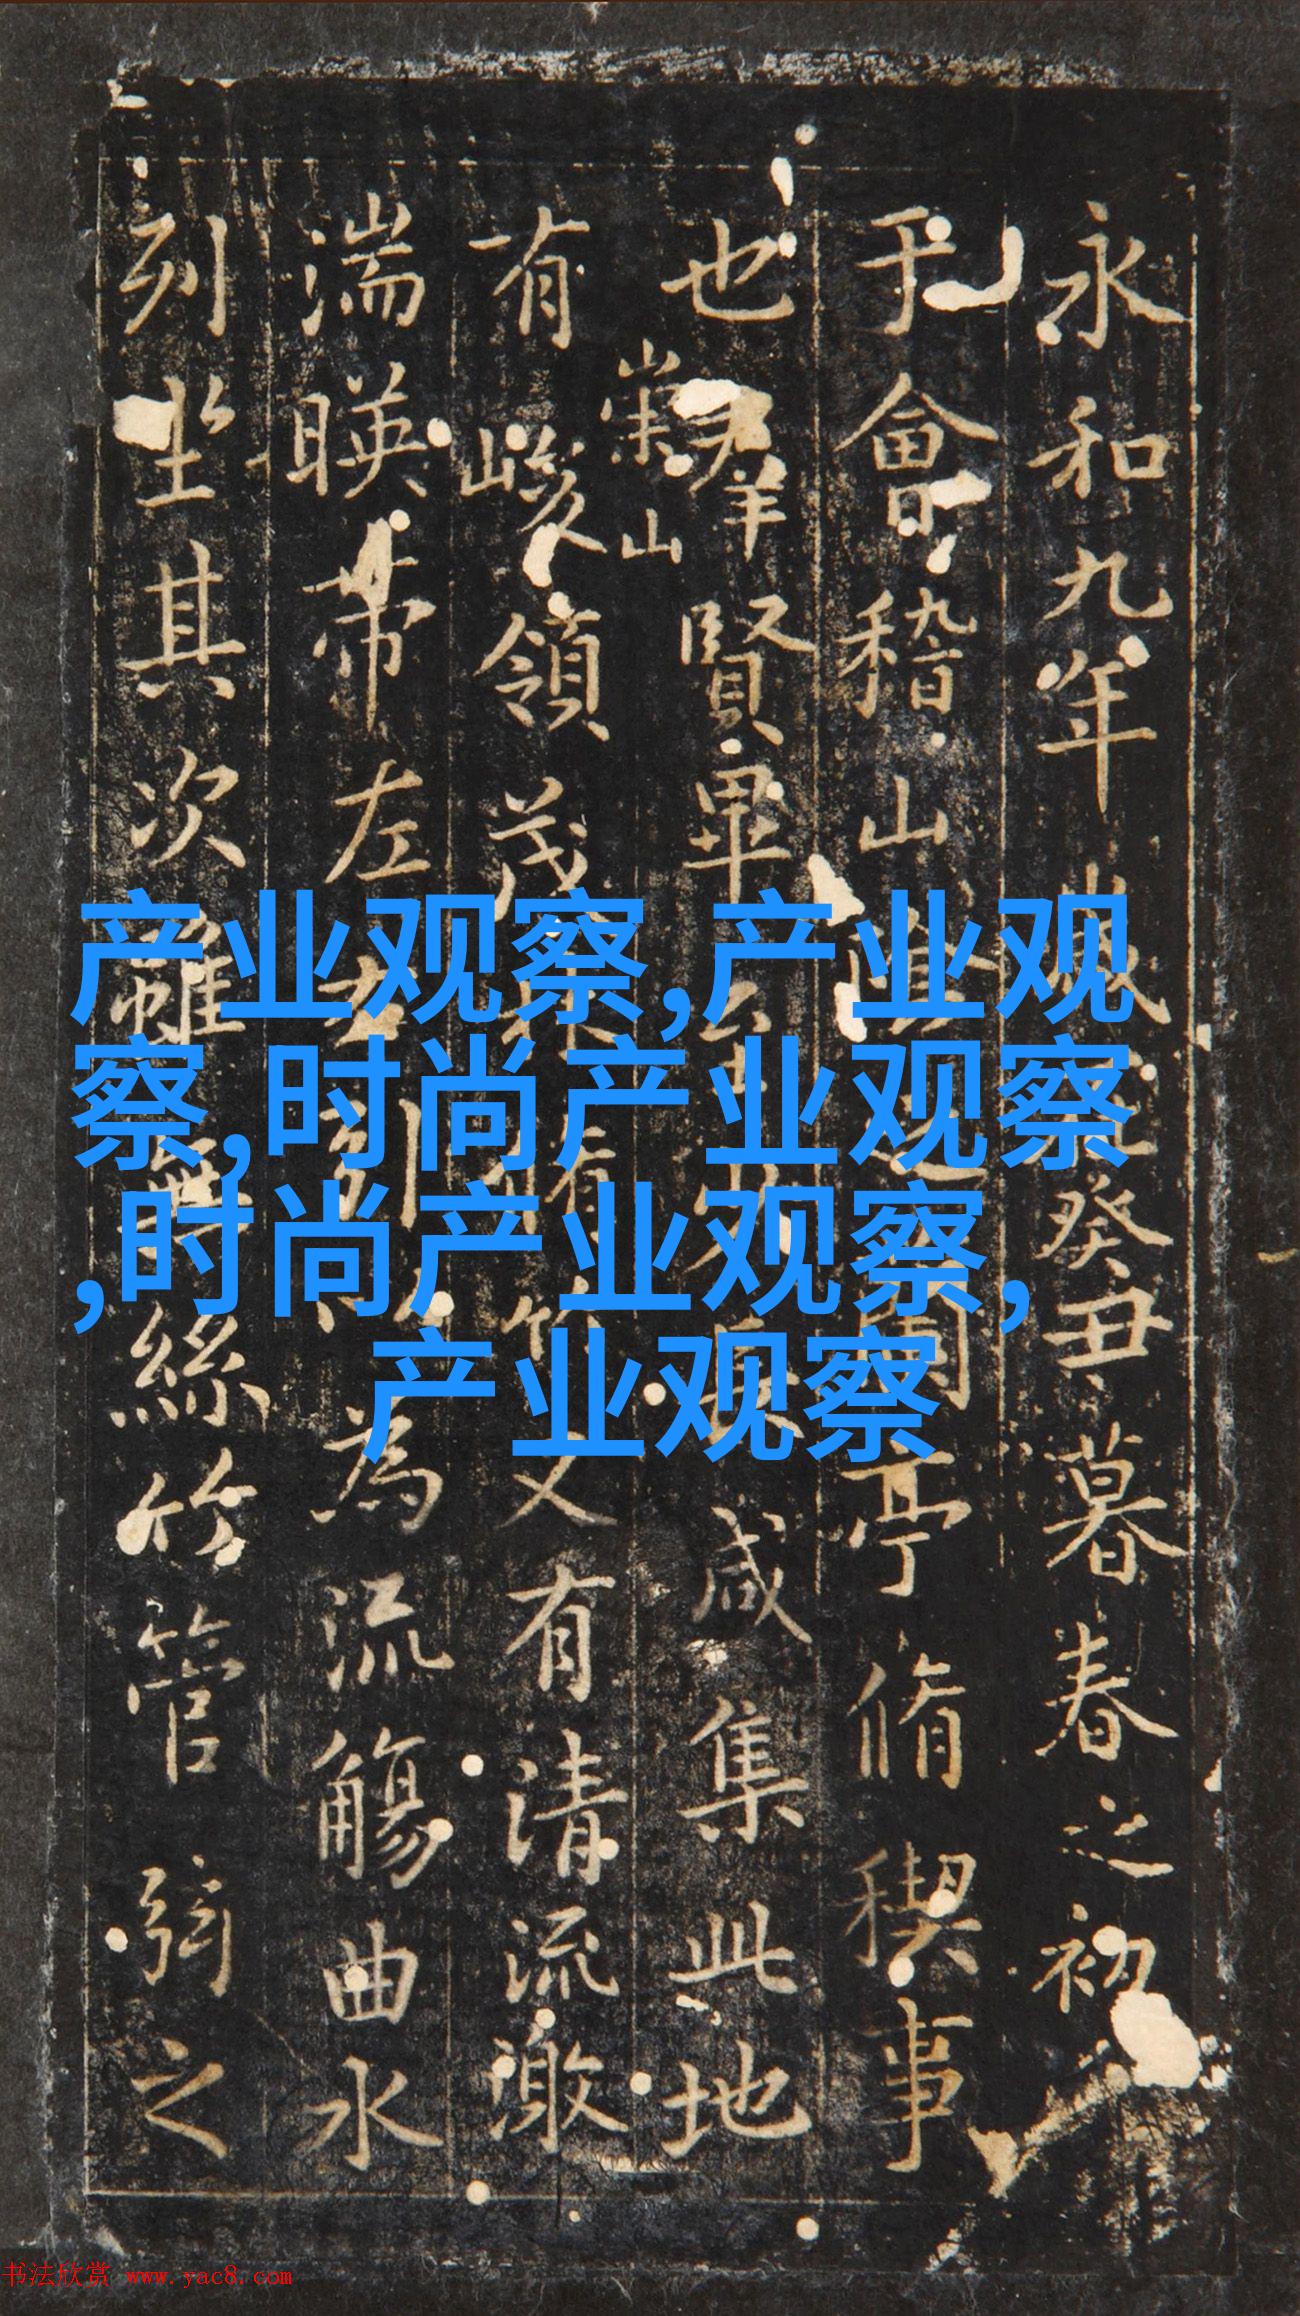 永和九年歲在癸丑暮春之初
于會稽山陰之蘭亭脩稧事
也羣賢畢至少長咸集此地
崇山
有峻領茂林脩竹又有清流激
湍暎帶左右引以為流觴曲水
列坐其次雖無絲竹管弦之
产业观察,产业观
察,时尚产业观察
,时尚产业观察,
产业观察
书法欣赏 www.yac8.com